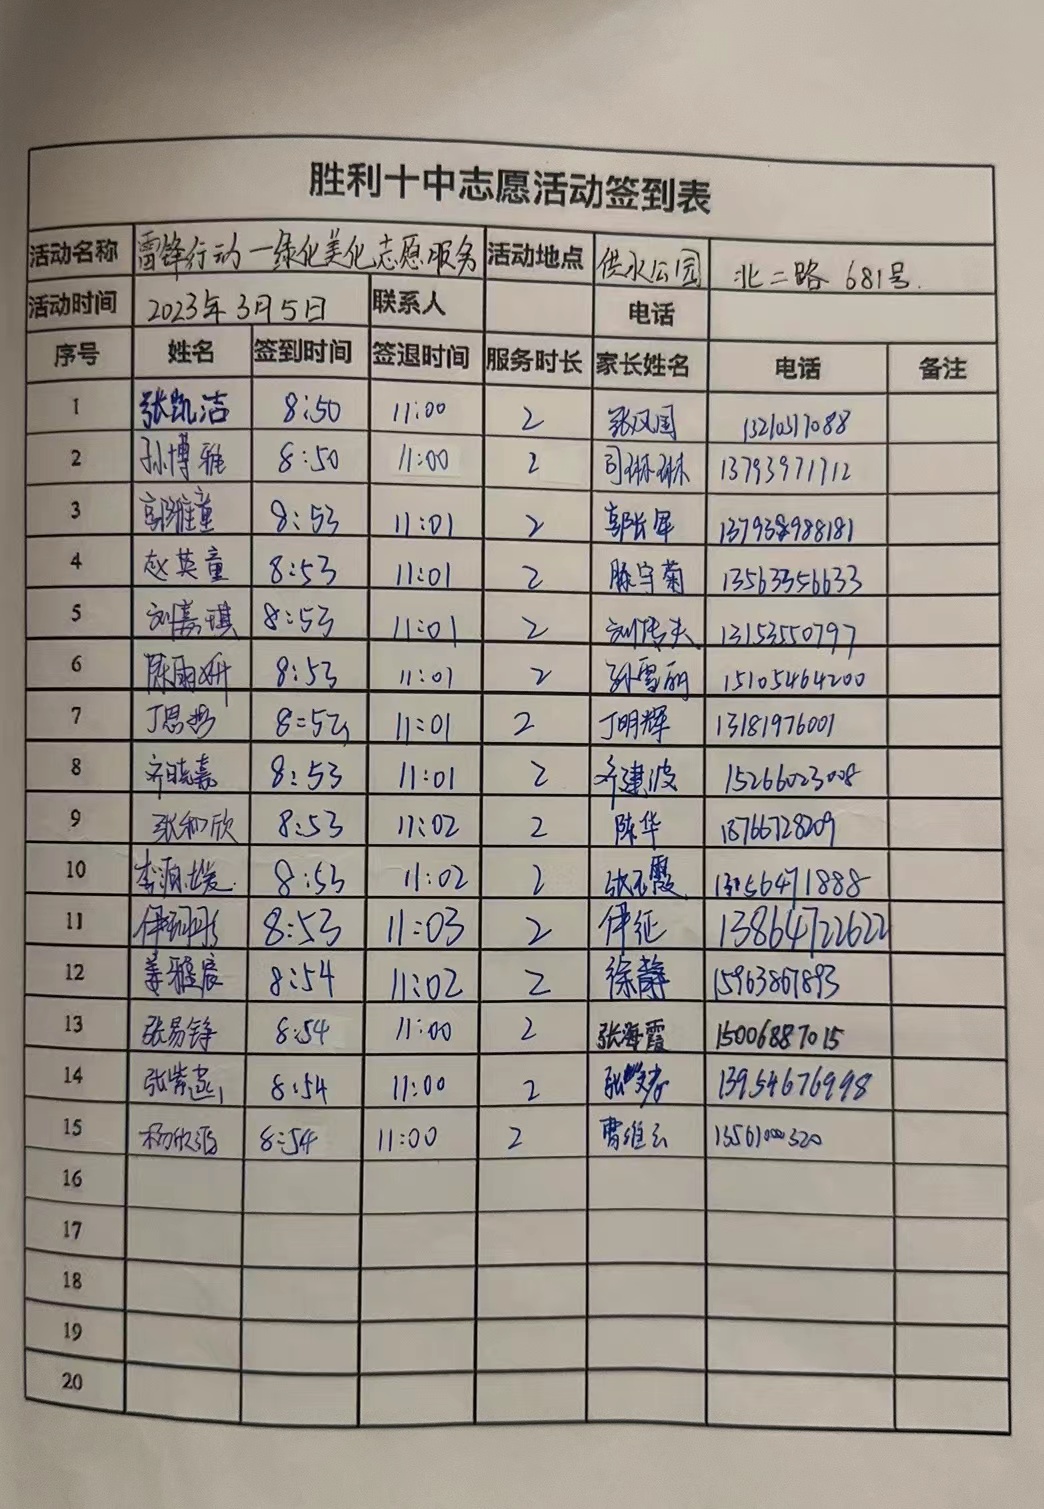 胜利十中志愿活动签到表
活动名称 雷锋行动一绿化美化志愿服务 活动地点 供水公园 北二路 681号.
活动时间 2023年3月5日 联系人 电话
序号 姓名 签到时间 签退时间 服务时长 家长姓名 电话 备注
1 张凯洁 8:50 11:00 2 张风国 13210317088
2 孙博雅 8:50 11:00 2 司琳琳 13793971712
3 郭雅童 8:53 11:01 2 郭长军 137938988181
4 赵英童 8:53 11:01 2 陈宇菊 13563356633
5 刘嘉琪 8:53 11:01 2 刘传夫 13153550797
6 陈雨妍 8:53 11:01 2 孙雪丽 15105464200
7 丁思 11:01 2 丁明辉 13181976001
8 齐晓嘉 8:53 11:01 2 齐建波 15266023008
9 张和欣 8:53 11:02 2 陈华 18766728209
10 8:53 11:02 2 张玉霞 13156471888
11 伊 8:53 11:03 2 伊征 13864722622
12 姜雅宸 8:54 11:02 2 徐静 15963861893
13 张易铮 8:54 11:00 2 张海霞 15006887015
14 张紫 8:54 11:00 2 张 13954676998
15 杨欣 8:54 11:00 2 曹维云 13561000320
16
17
18
19
20